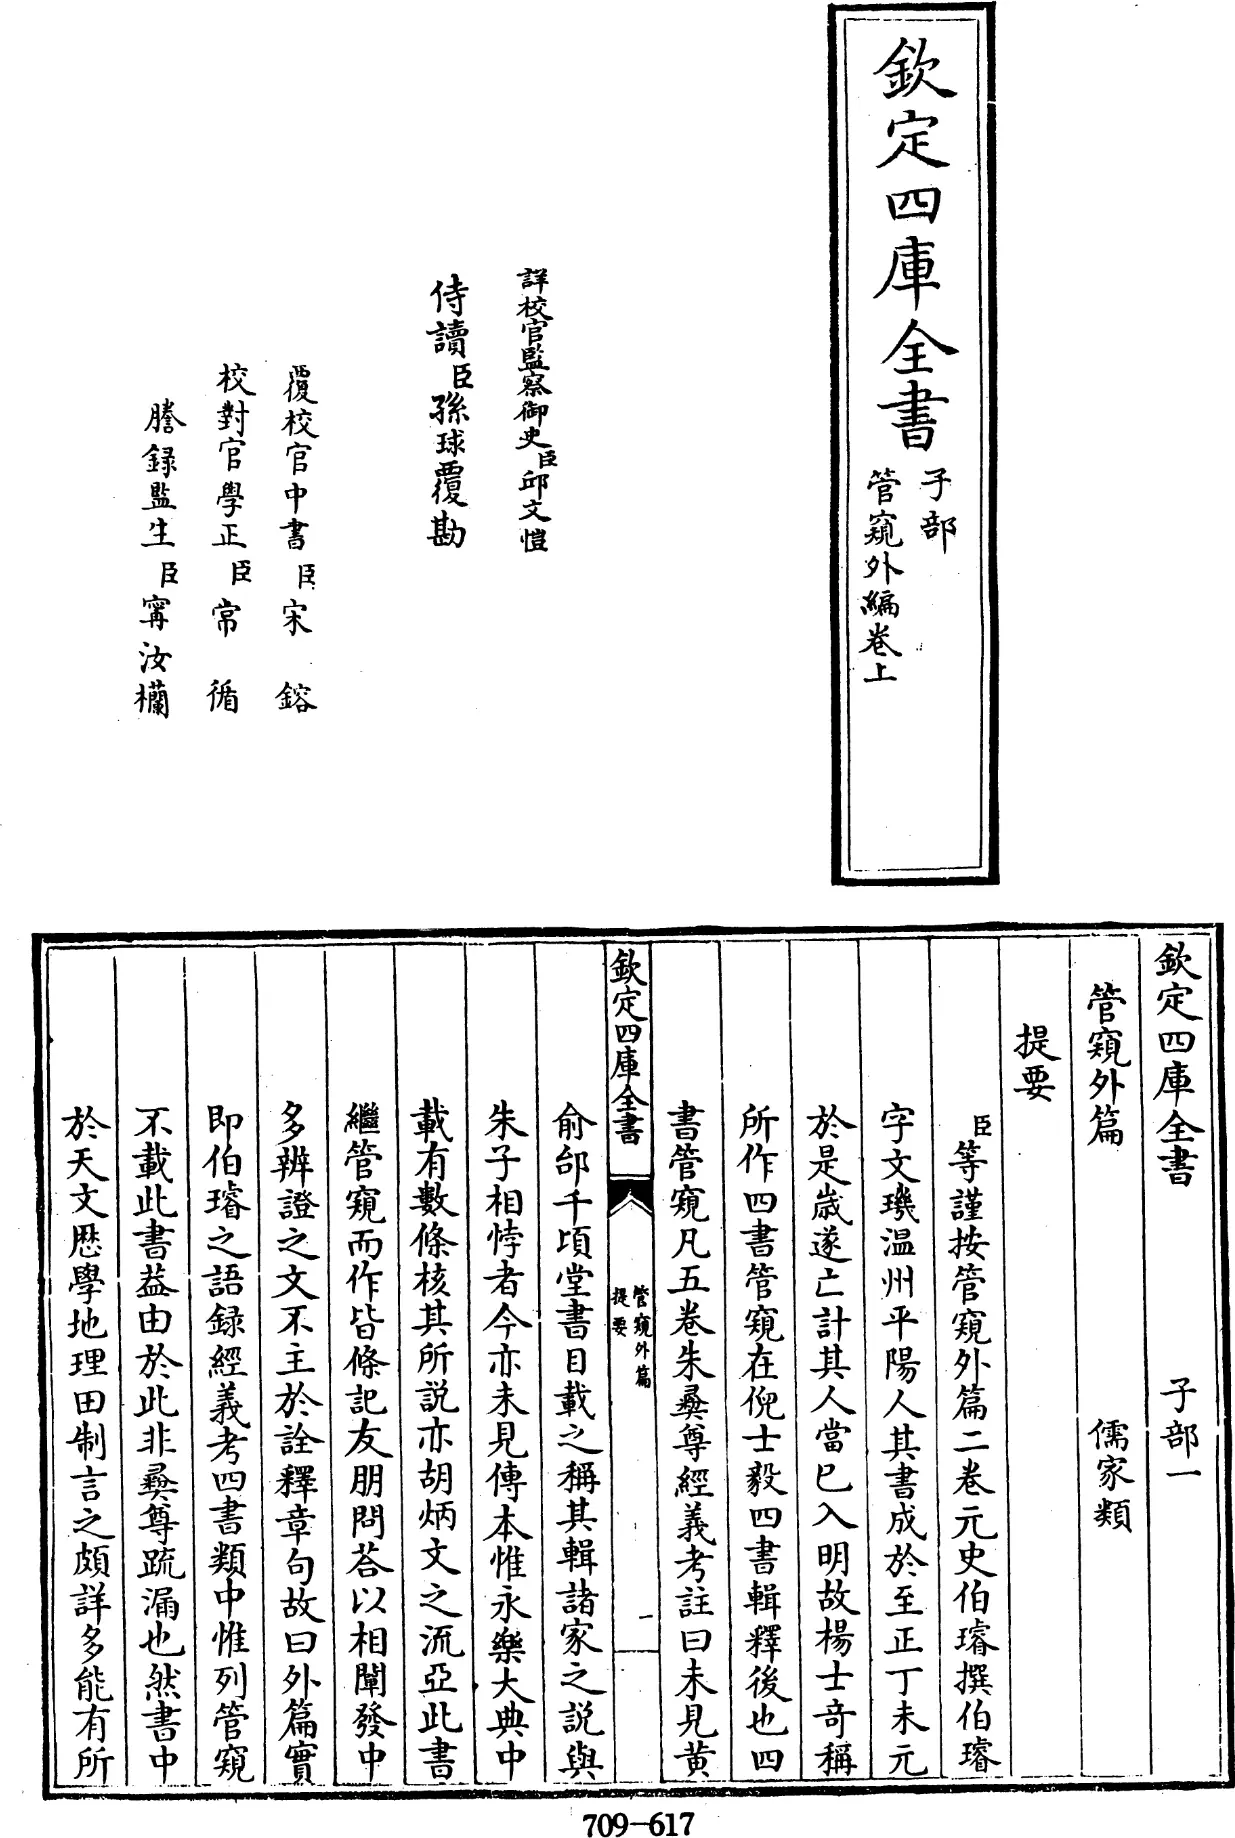 欽定四庫全書
子部
管窺外編卷上
詳校官監察御史臣邱文愷
侍讀臣孫球覆勘
覆校官中書臣宋鎔
校對官學正臣常循
謄録監生臣甯汝欄
欽定四庫全書 子部一
管窺外篇 儒家類
提要
臣等謹按管窺外篇二卷元史伯璿撰伯璿
字文璣温州平陽人其書成於至正丁未元
於是歳遂亡計其人當已入明故楊士奇稱
所作四書管窺在倪士毅四書輯釋後也四
書管窺凡五卷朱彛尊經義考註曰未見黄
欽定四庫全書
管窺外篇
提要
一
俞邰千頃堂書目載之稱其輯諸家之説與
朱子相悖者今亦未見傳本惟永樂大典中
載有數條核其所説亦胡炳文之流亞此書
繼管窺而作皆條記友朋問荅以相闡發中
多辨證之文不主於詮釋章句故曰外篇實
即伯璿之語録經義考四書類中惟列管窺
不載此書葢由於此非彛尊疏漏也然書中
於天文厯學地理田制言之頗詳多能有所
709-617